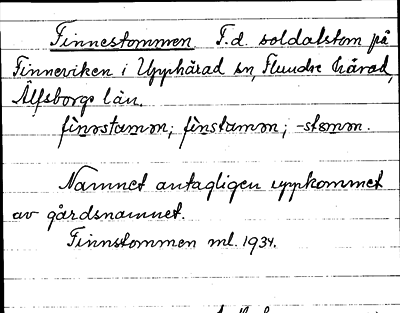 Finnestommen F.d. soldatstom på
Finneviken i Upphärad sn, Flundre härad,
Älfsborgs län.
fìnɘstɷmɘn; fènstɷmɘn; -stɷmɘn.
Namnet antagligen uppkommet
av gårdsnamnet.
Finnstommen ml. 1934.